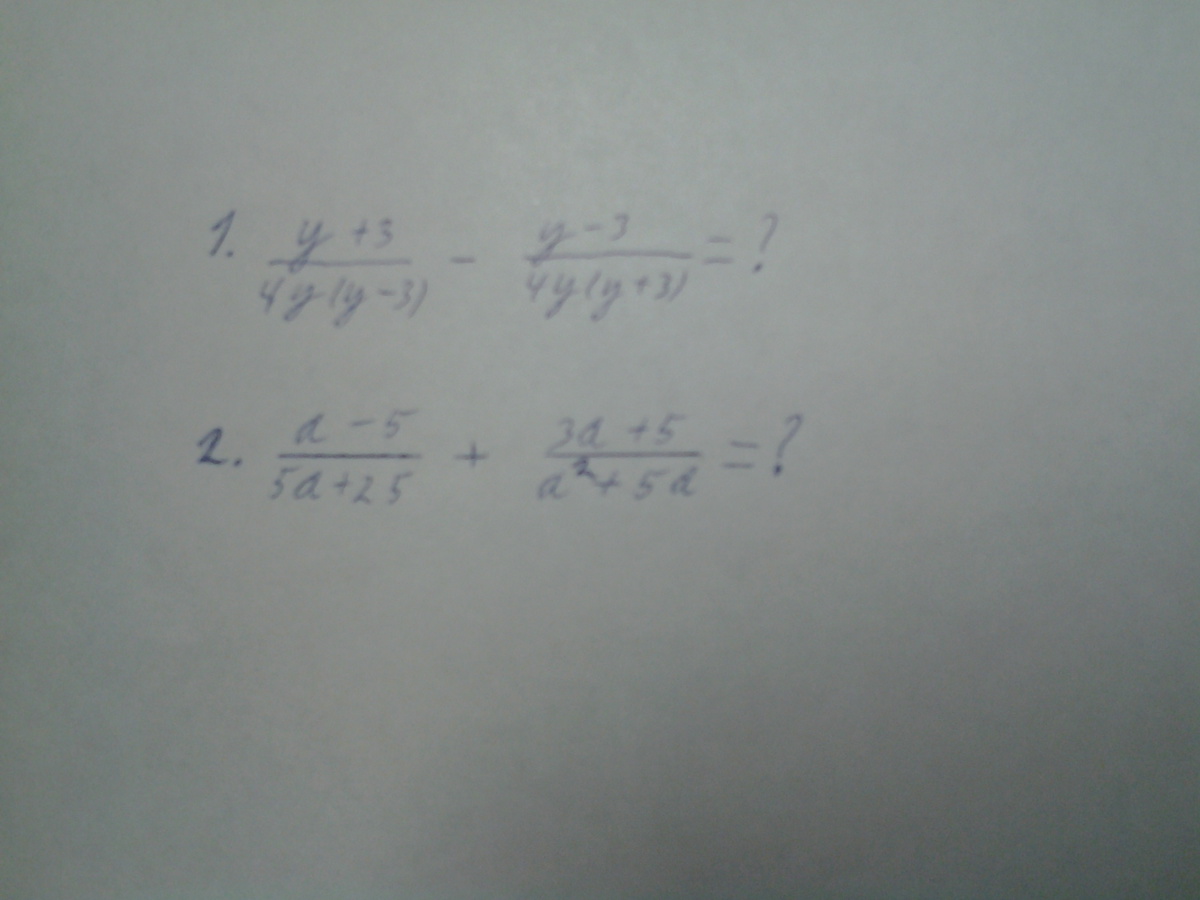 1. \frac{y+3}{4y(y-3)} - \frac{y-3}{4y(y+3)} = ?
2. \frac{a-5}{5a+25} + \frac{3a+5}{a^2+5a} = ?